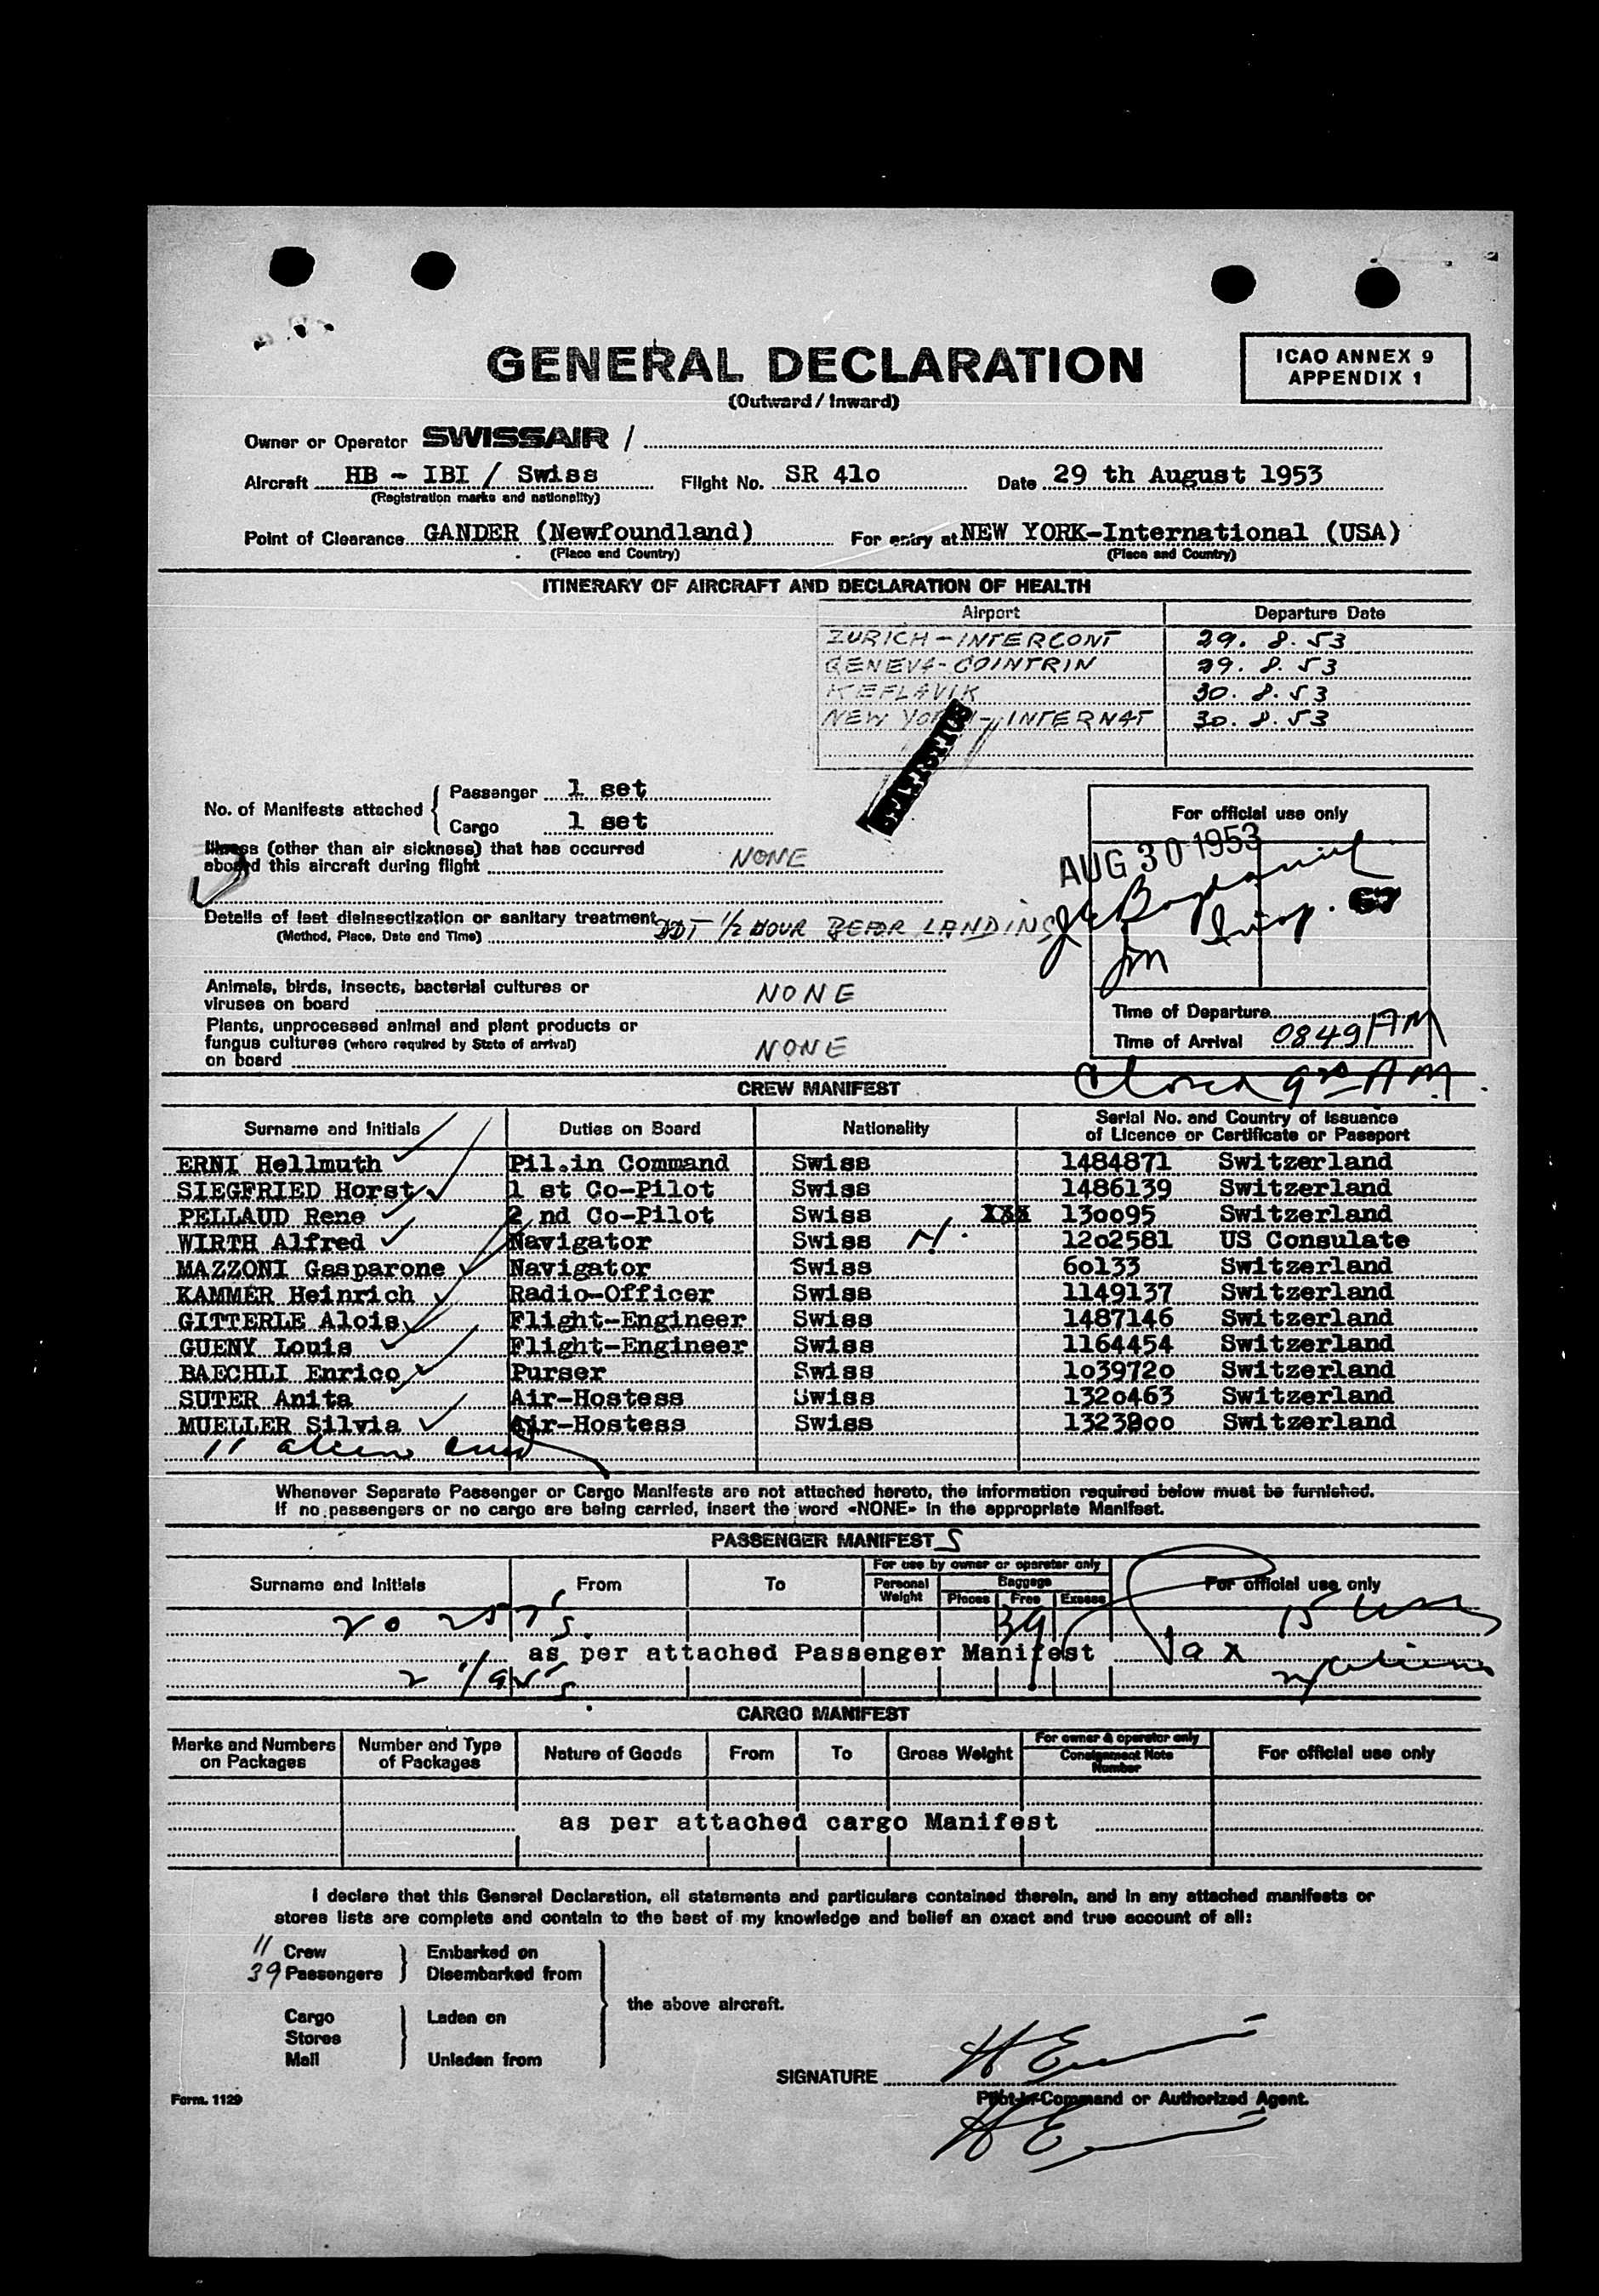 GENERAL DECLARATION
(Outward / Inward)
ICAO ANNEX 9
APPENDIX 1
Owner or Operator SWISSAIR /
Aircraft HB - IBI / Swiss Flight No. SR 41o Date 29 th August 1953
(Registration marks and nationality)
Point of Clearance GANDER (Newfoundland) For entry at NEW YORK-International (USA)
(Place and Country) (Place and Country)
ITINERARY OF AIRCRAFT AND DECLARATION OF HEALTH
Airport Departure Date
ZURICH - INTERCONT 29. 8. 53
GENEVA - COINTRIN 29. 8. 53
KEFLAVIK 30. 8. 53
NEW YORK - INTERNAT 30. 8. 53
STATISTICS
No. of Manifests attached
Passenger 1 set
Cargo 1 set
For official use only
AUG 30 1953
Illness (other than air sickness) that has occurred
aboard this aircraft during flight NONE
67
Details of last disinsectization or sanitary treatment DDT 1/2 HOUR BEFOR LANDING
(Method, Place, Date and Time)
Insp.
Animals, birds, insects, bacterial cultures or
viruses on board NONE
Time of Departure
Plants, unprocessed animal and plant products or
fungus cultures (where required by State of arrival)
on board NONE
Time of Arrival 0849 AM
Closed 9 20 AM
CREW MANIFEST
Surname and Initials Duties on Board Nationality Serial No. and Country of Issuance
of Licence or Certificate or Passport
ERNI Hellmuth Pil.in Command Swiss 1484871 Switzerland
SIEGFRIED Horst 1 st Co-Pilot Swiss 1486139 Switzerland
PELLAUD Rene 2 nd Co-Pilot Swiss 13oo95 Switzerland
WIRTH Alfred Navigator Swiss 12o2581 US Consulate
MAZZONI Gasparone Navigator Swiss 6o133 Switzerland
KAMMER Heinrich Radio-Officer Swiss 1149137 Switzerland
GITTERLE Alois Flight-Engineer Swiss 1487146 Switzerland
GUENY Louis Flight-Engineer Swiss 1164454 Switzerland
BAECHLI Enrico Purser Swiss 1o3972o Switzerland
SUTER Anita Air-Hostess Swiss 132o463 Switzerland
MUELLER Silvia Air-Hostess Swiss 13238oo Switzerland
11 alien crew
Whenever Separate Passenger or Cargo Manifests are not attached hereto, the information required below must be furnished.
If no passengers or no cargo are being carried, insert the word «NONE» in the appropriate Manifest.
PASSENGER MANIFEST S
For use by owner or operator only
Surname and Initials From To Personal Weight Baggage Pieces Free Excess For official use only
39
as per attached Passenger Manifest
CARGO MANIFEST
Marks and Numbers on Packages Number and Type of Packages Nature of Goods From To Gross Weight For owner & operator only Consignment Note Number For official use only
as per attached cargo Manifest
I declare that this General Declaration, all statements and particulars contained therein, and in any attached manifests or
stores lists are complete and contain to the best of my knowledge and belief an exact and true account of all:
11 Crew Embarked on
39 Passengers Disembarked from
the above aircraft.
Cargo Laden on
Stores
Mail Unladen from
SIGNATURE H Erni
Pilot-in-Command or Authorized Agent.
H Erni
Form. 1129